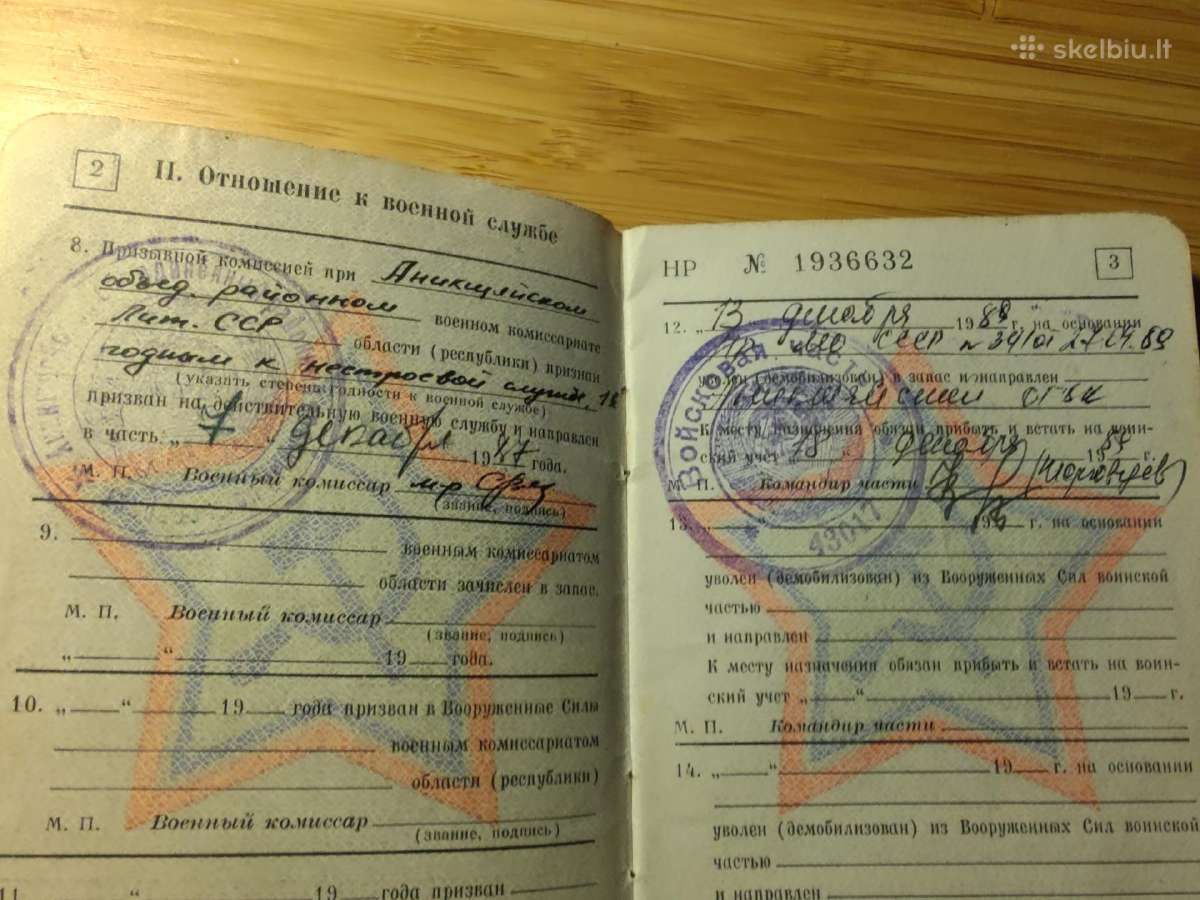 skelbiu.lt
2
II. Отношение к военной службе
8. Призывной комиссией при Аникщяйском
объед. районном военном комиссариате
Лит. ССР области (республики) признан
годным к нестроевой службе,
(указать степень годности к военной службе)
призван на действительную военную службу и направлен
в часть „7“ декабря 1987 года.
М. П. Военный комиссар м-р
(звание, подпись)
9. военным комиссариатом
области зачислен в запас.
М. П. Военный комиссар
(звание, подпись)
„ “ 19 года.
10. „ “ 19 года призван в Вооруженные Силы
военным комиссариатом
области (республики)
М. П. Военный комиссар
(звание, подпись)
11. “ 19 года призван
НР № 1936632
3
12. „13 декабря 1989 г.“ на основании
Пр. МО СССР
уволен (демобилизован) в запас и направлен
К месту назначения обязан прибыть и встать на воин-
ский учет „18“ декабря 1989 г.
М. П. Командир части
Войсковая часть
43017
13. „ “ 19 г. на основании
уволен (демобилизован) из Вооруженных Сил воинской
частью
и направлен
К месту назначения обязан прибыть и встать на воин-
ский учет „ “ 19 г.
М. П. Командир части
14. „ “ 19 г. на основании
уволен (демобилизован) из Вооруженных Сил воинской
частью
и направлен